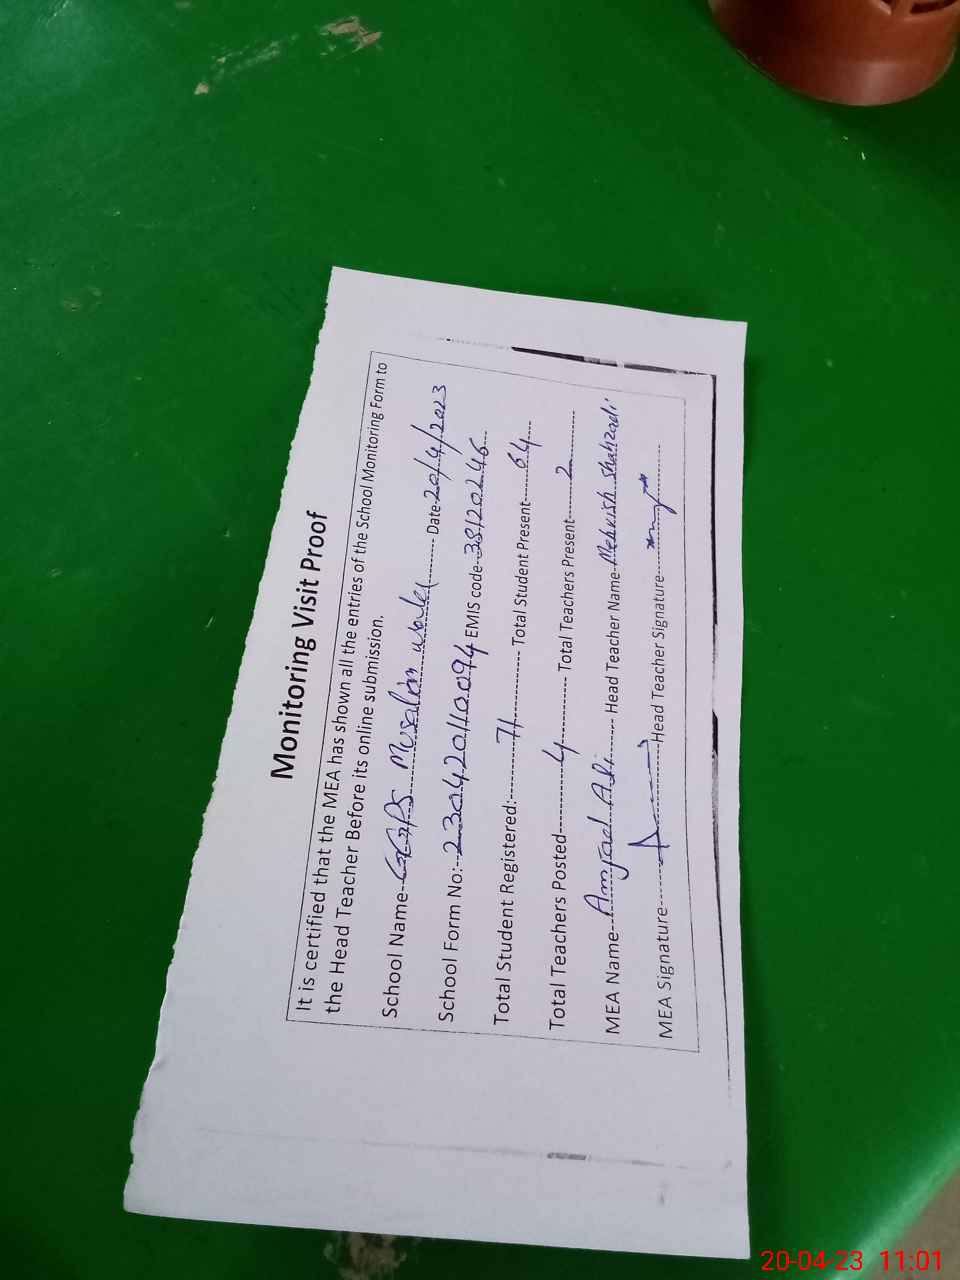 Monitoring Visit Proof
It is certified that the MEA has shown all the entries of the School Monitoring Form to
the Head Teacher Before its online submission.
School Name--GGPS Musalim wala------- Date-20/4/2023
School Form No:--230420110094 EMIS code-38120246
Total Student Registered:--------71--------- Total Student Present------64----
Total Teachers Posted---------4---------- Total Teachers Present------2--------
MEA Name--Amjad Ali------ Head Teacher Name-Mehvish Shahzadi
MEA Signature---------Head Teacher Signature---------
20-04-23 11:01